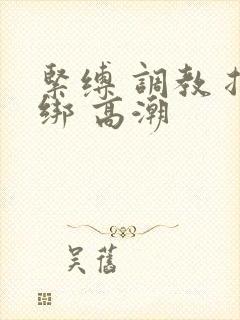 緊縛 調教
綁 高潮
吴舊